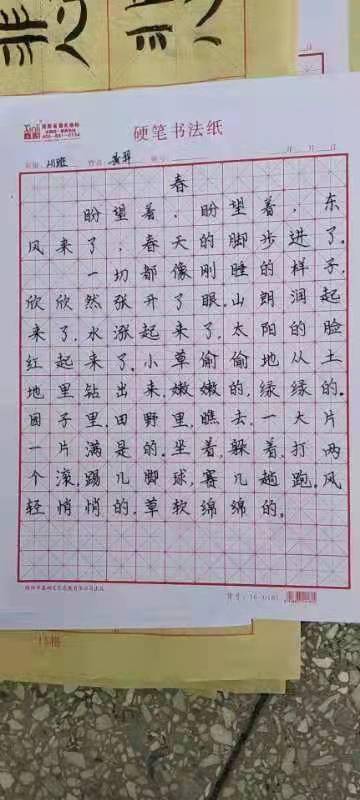 硬笔书法纸
春
盼望着,盼望着,东
风来了,春天的脚步进了。
一切都像刚睡的样子,
欣欣然张开了眼。山朗润起
来了,水涨起来了,太阳的脸
红起来了。小草偷偷地从土
地里钻出来,嫩嫩的,绿绿的。
园子里,田野里,瞧去,一大片
一片满是的。坐着,躲着,打两
个滚,踢几脚球,赛几趟跑。风
轻悄悄的,草软绵绵的。
15格